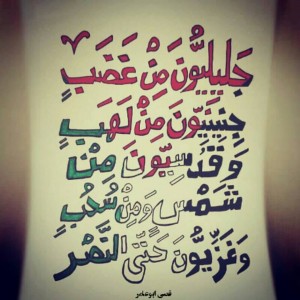 جَلِيلِيُّونَ مِنْ غَضَبٍ
جِنِينِيُّونَ مِنْ لَهَبٍ
وَقُدْسِيُّونَ مِنْ
شَمْسٍ وَمِنْ سُحُبٍ
وَغَزِّيُّونَ حَتَّى النَّصْرِ
قصي ابوعاذر